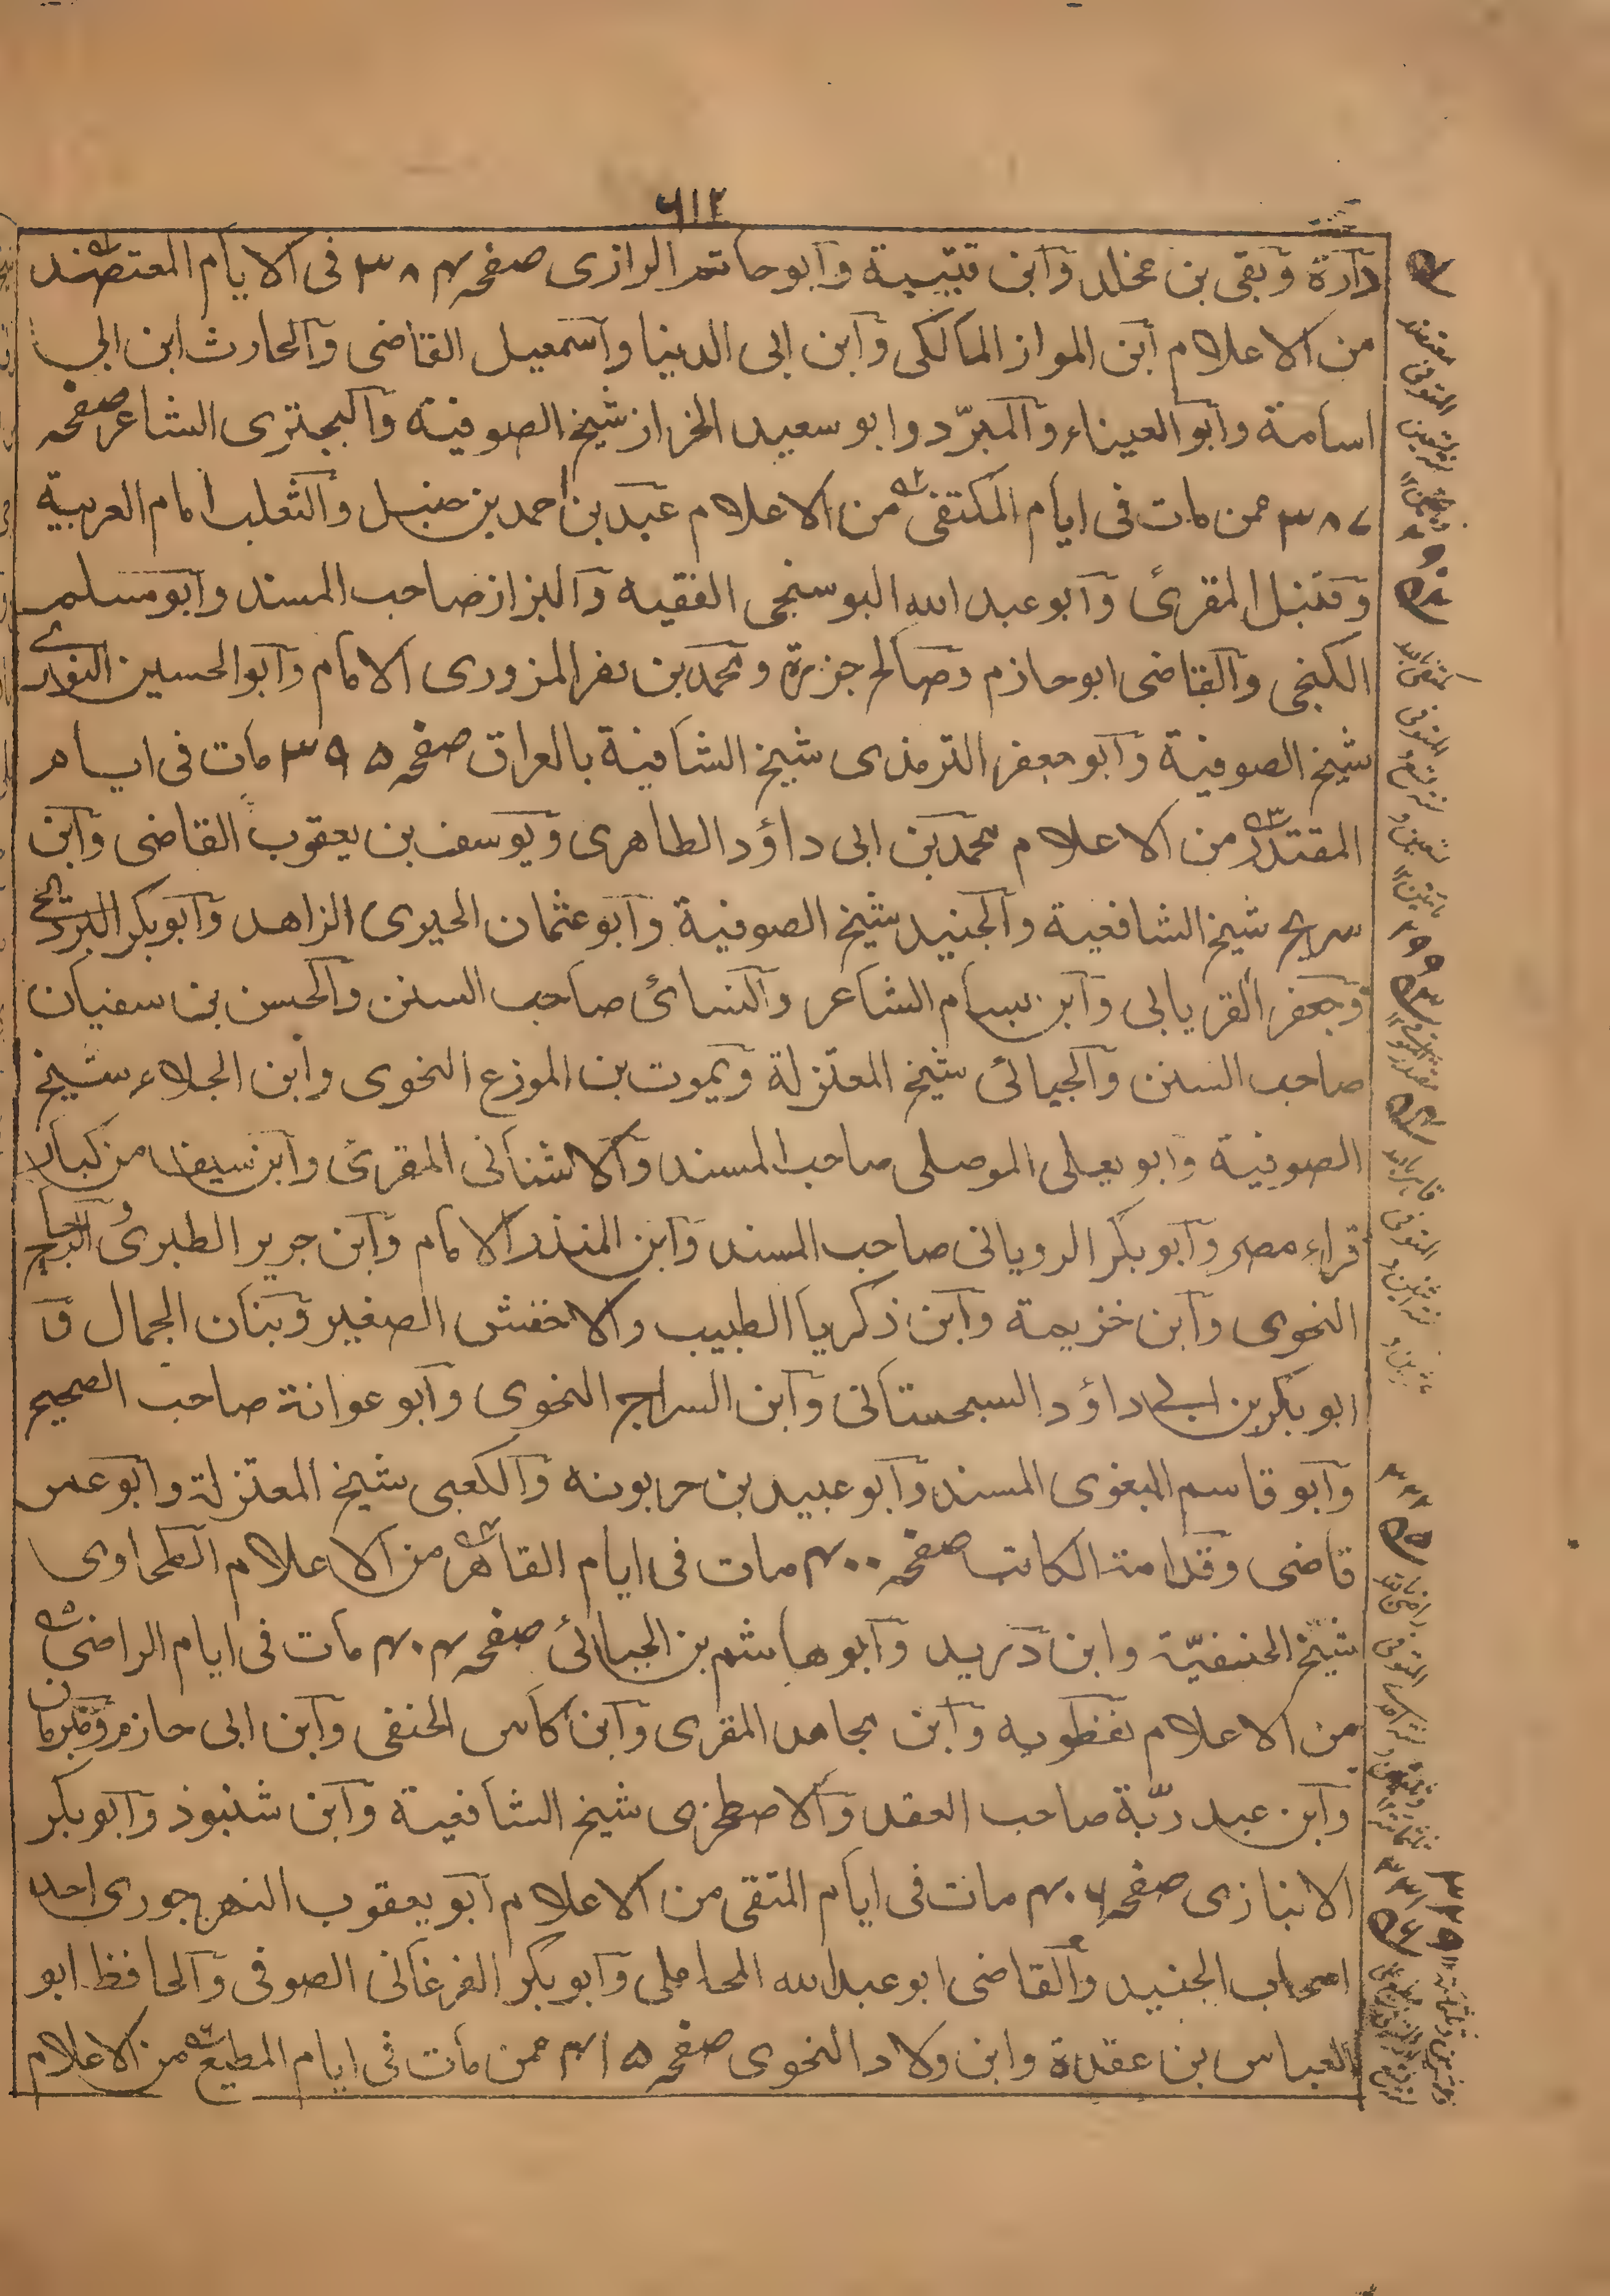 ٦١٢
دارة وبقى بن مخلد وابن قتيبة وابوحاتم الرازى صفحه ٣٨٤ فى الايام المعتضد
من الاعلام ابن المواز المالكى وابن ابى الدنيا واسمعيل القاضى والحارث ابن ابى
اسامة وابو العيناء والمبرّد وابو سعيد الخراز شيخ الصوفية والبحترى الشاعر صفحه
٣٨٧ ممن مات فى ايام المكتفى من الاعلام عبد بن احمد بن حنبل والثعلب امام العربية
وقنبل المقرئ وابو عبد الله البوسنجى الفقيه والبزاز صاحب المسند وابو مسلم
الكنجى والقاضى ابو حازم وصالح جزرة ومحمد بن نصر المزورى الامام وابو الحسين النورى
شيخ الصوفية وابو جعفر الترمذى شيخ الشافية بالعراق صفحه ٣٩٥ مات فى ايام
المقتدر من الاعلام محمد بن ابى داؤد الطاهرى ويوسف بن يعقوب القاضى وابن
سريج شيخ الشافعية والجنيد شيخ الصوفية وابو عثمان الحيرى الزاهد وابو بكر البردى
وجعفر القريابى وابن بسام الشاعر والنسائ صاحب السنن والحسن بن سفيان
صاحب السنن والجيائى شيخ المعتزلة ويموت بن الموزع النحوى وابن الجلاء شيخ
الصوفية وابو يعلى الموصلى صاحب المسند والاشنانى المقرئ وابن سيف من كبار
قراء مصر وابو بكر الرويانى صاحب المسند وابن المنذر الامام وابن جرير الطبرى والزجاج
النحوى وابن خزيمة وابن ذكريا الطبيب والاخفش الصغير وبنان الجمال و
ابو بكر بن ابى داؤد السبحستانى وابن السراج النحوى وابو عوانة صاحب الصحيح
وابو قاسم البغوى المسند وابو عبيد بن حربونه والكعبى شيخ المعتزلة وابو عمر
قاضى وقدامة الكاتب صفحه ٤٠٠ مات فى ايام القاهر من الاعلام الطحاوى
شيخ الحنفيّة وابن دريد وابو هاشم بن الجبائى صفحه ٤٠٤ مات فى ايام الراضى
من الاعلام نفطويه وابن مجاهد المقرى وابن كاس الحنفى وابن ابى حازم ومبرمان
وابن عبد ربّة صاحب العقد والاصطخرى شيخ الشافعية وابن شنبوذ وابو بكر
الانبازى صفحه ٤٠٦ مات فى ايام المتقى من الاعلام ابو يعقوب النهرجورى احد
اصحاب الجنيد والقاضى ابو عبد الله المحاملى وابو بكر الفرغانى الصوفى والحافظ ابو
العباس بن عقدة وابن ولاد النحوى صفحه ٤١٥ ممن مات فى ايام المطيع من الاعلام